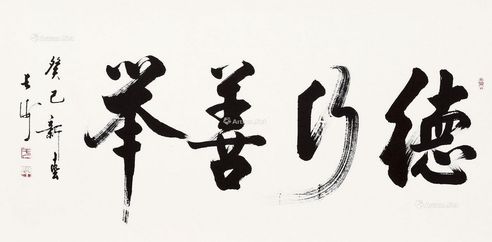 德行善举
癸巳新春